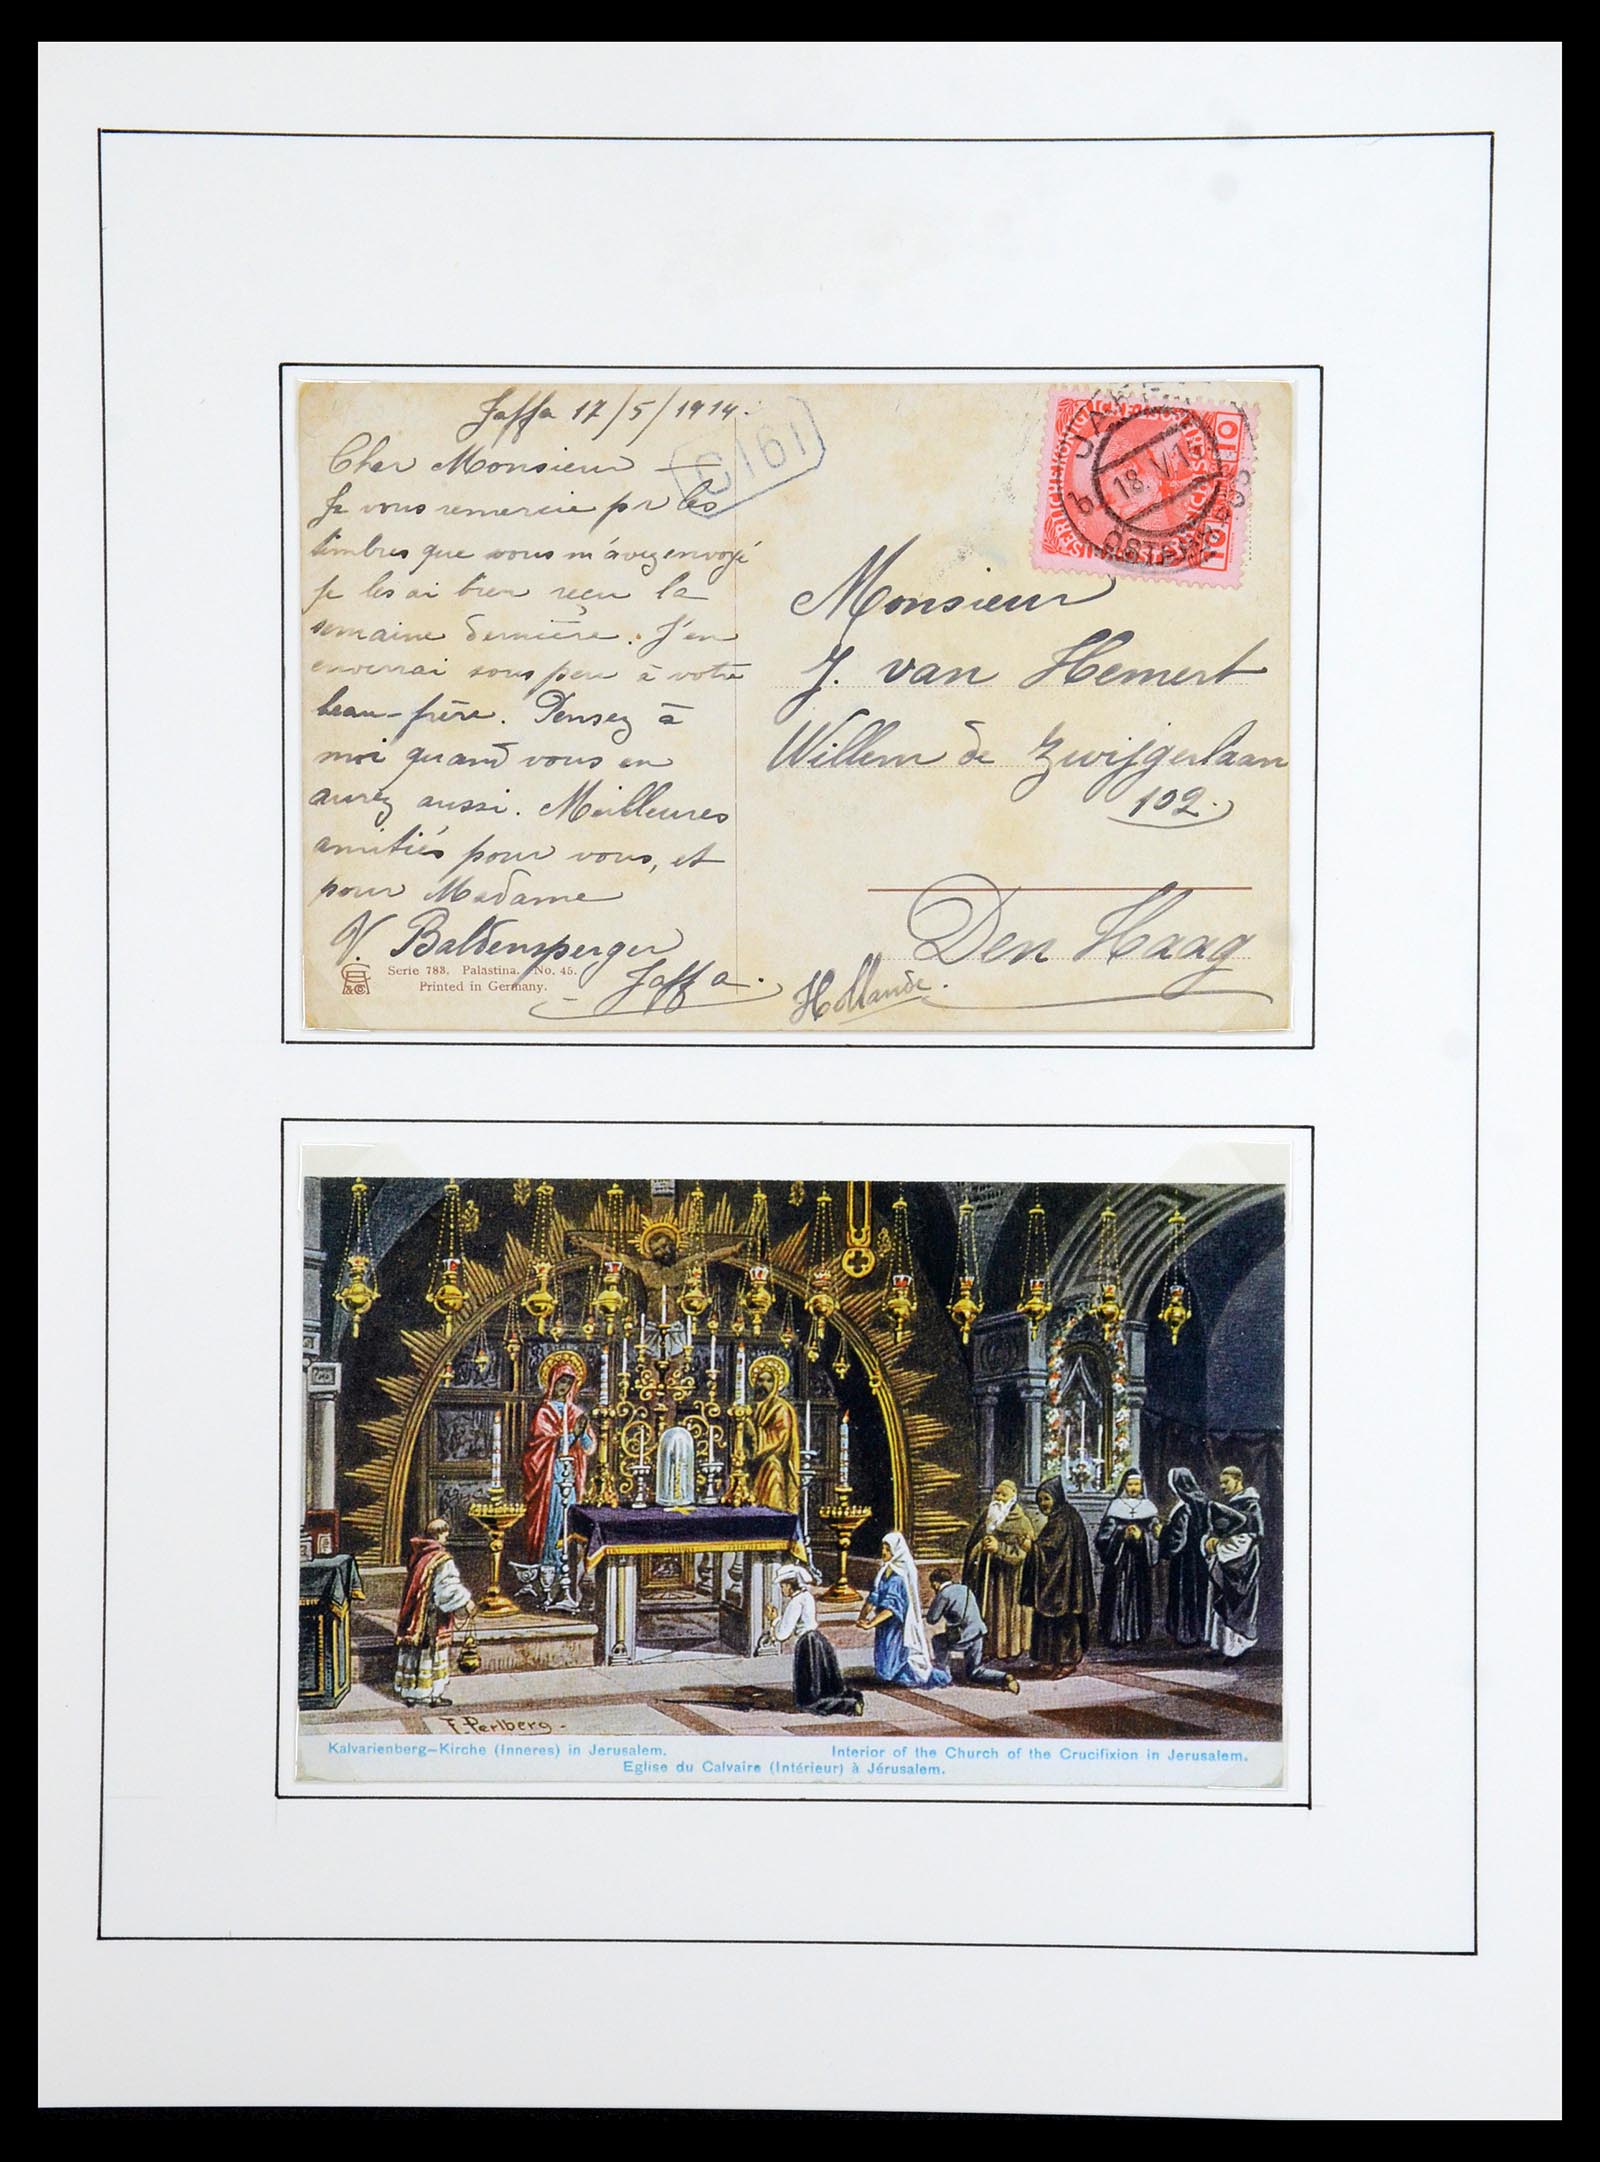 Jaffa 17/5/1914.
Cher Monsieur —
Je vous remercie pr les
timbres que vous m'avez envoyé
je les ai bien reçu la
semaine dernière. J'en
enverrai sous peu à votre
beau-frère. Pensez à
moi quand vous en
aurez aussi. Meilleures
amitiés pour vous, et
pour Madame
V. Baldensperger
Jaffa.
Serie 783. Palästina. No. 45.
Printed in Germany.
10 10
18. V. 14
b
Monsieur
J. van Hemert
Willem de Zwijgerlaan
102.
Den Haag
Hollande.
F. Perlberg
Kalvarienberg–Kirche (Inneres) in Jerusalem.
Interior of the Church of the Crucifixion in Jerusalem.
Eglise du Calvaire (Intérieur) à Jérusalem.